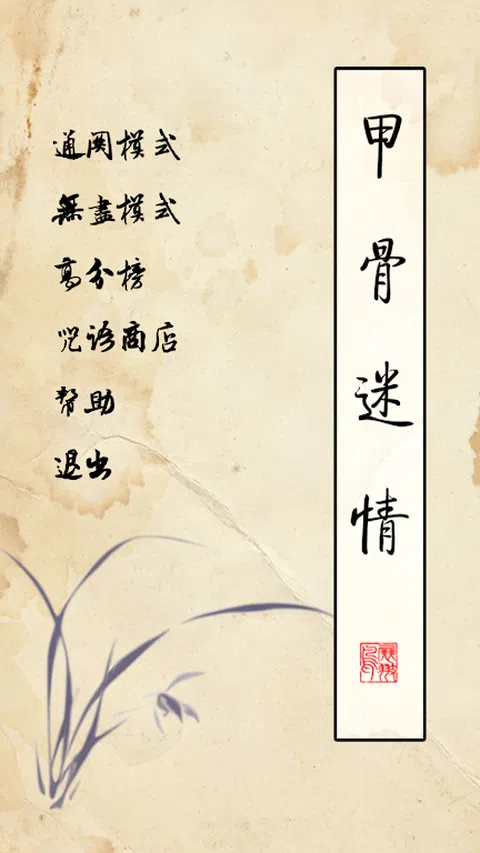 甲骨迷情
通関模式
無盡模式
高分榜
咒语商店
帮助
退出